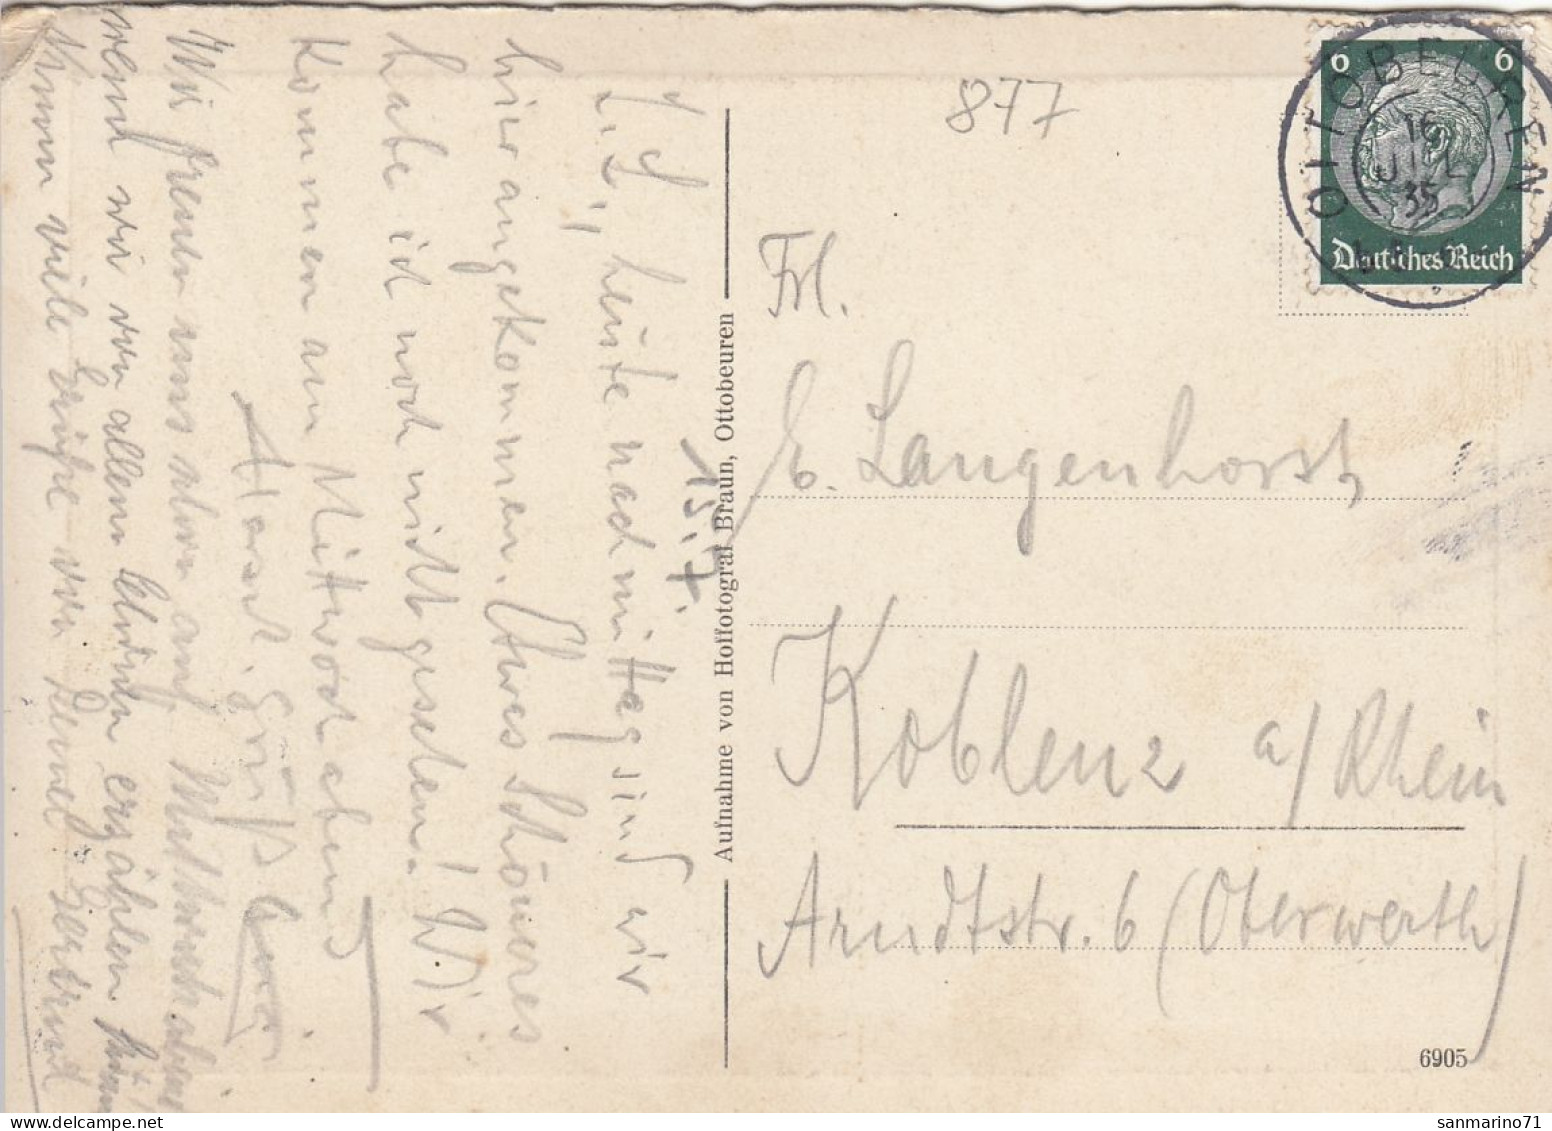 877
6 6
Deutsches Reich
OTTOBEUREN
16
JUL
35
Frl.
E. Langenhorst,
Koblenz a/Rhein
Arndtstr. 6 (Oberwerth)
6905
Aufnahme von Hoffotograf Braun, Ottobeuren
15.7.
L. L., heute nachmittag sind wir
hier angekommen. Etwas Schöneres
habe ich noch nicht gesehen! Wir
kommen am Mittwochabend
Grüße
Wir freuen uns schon auf Mittwochabend
wenn wir von allem erzählen
viele Grüße von
sanmarino71